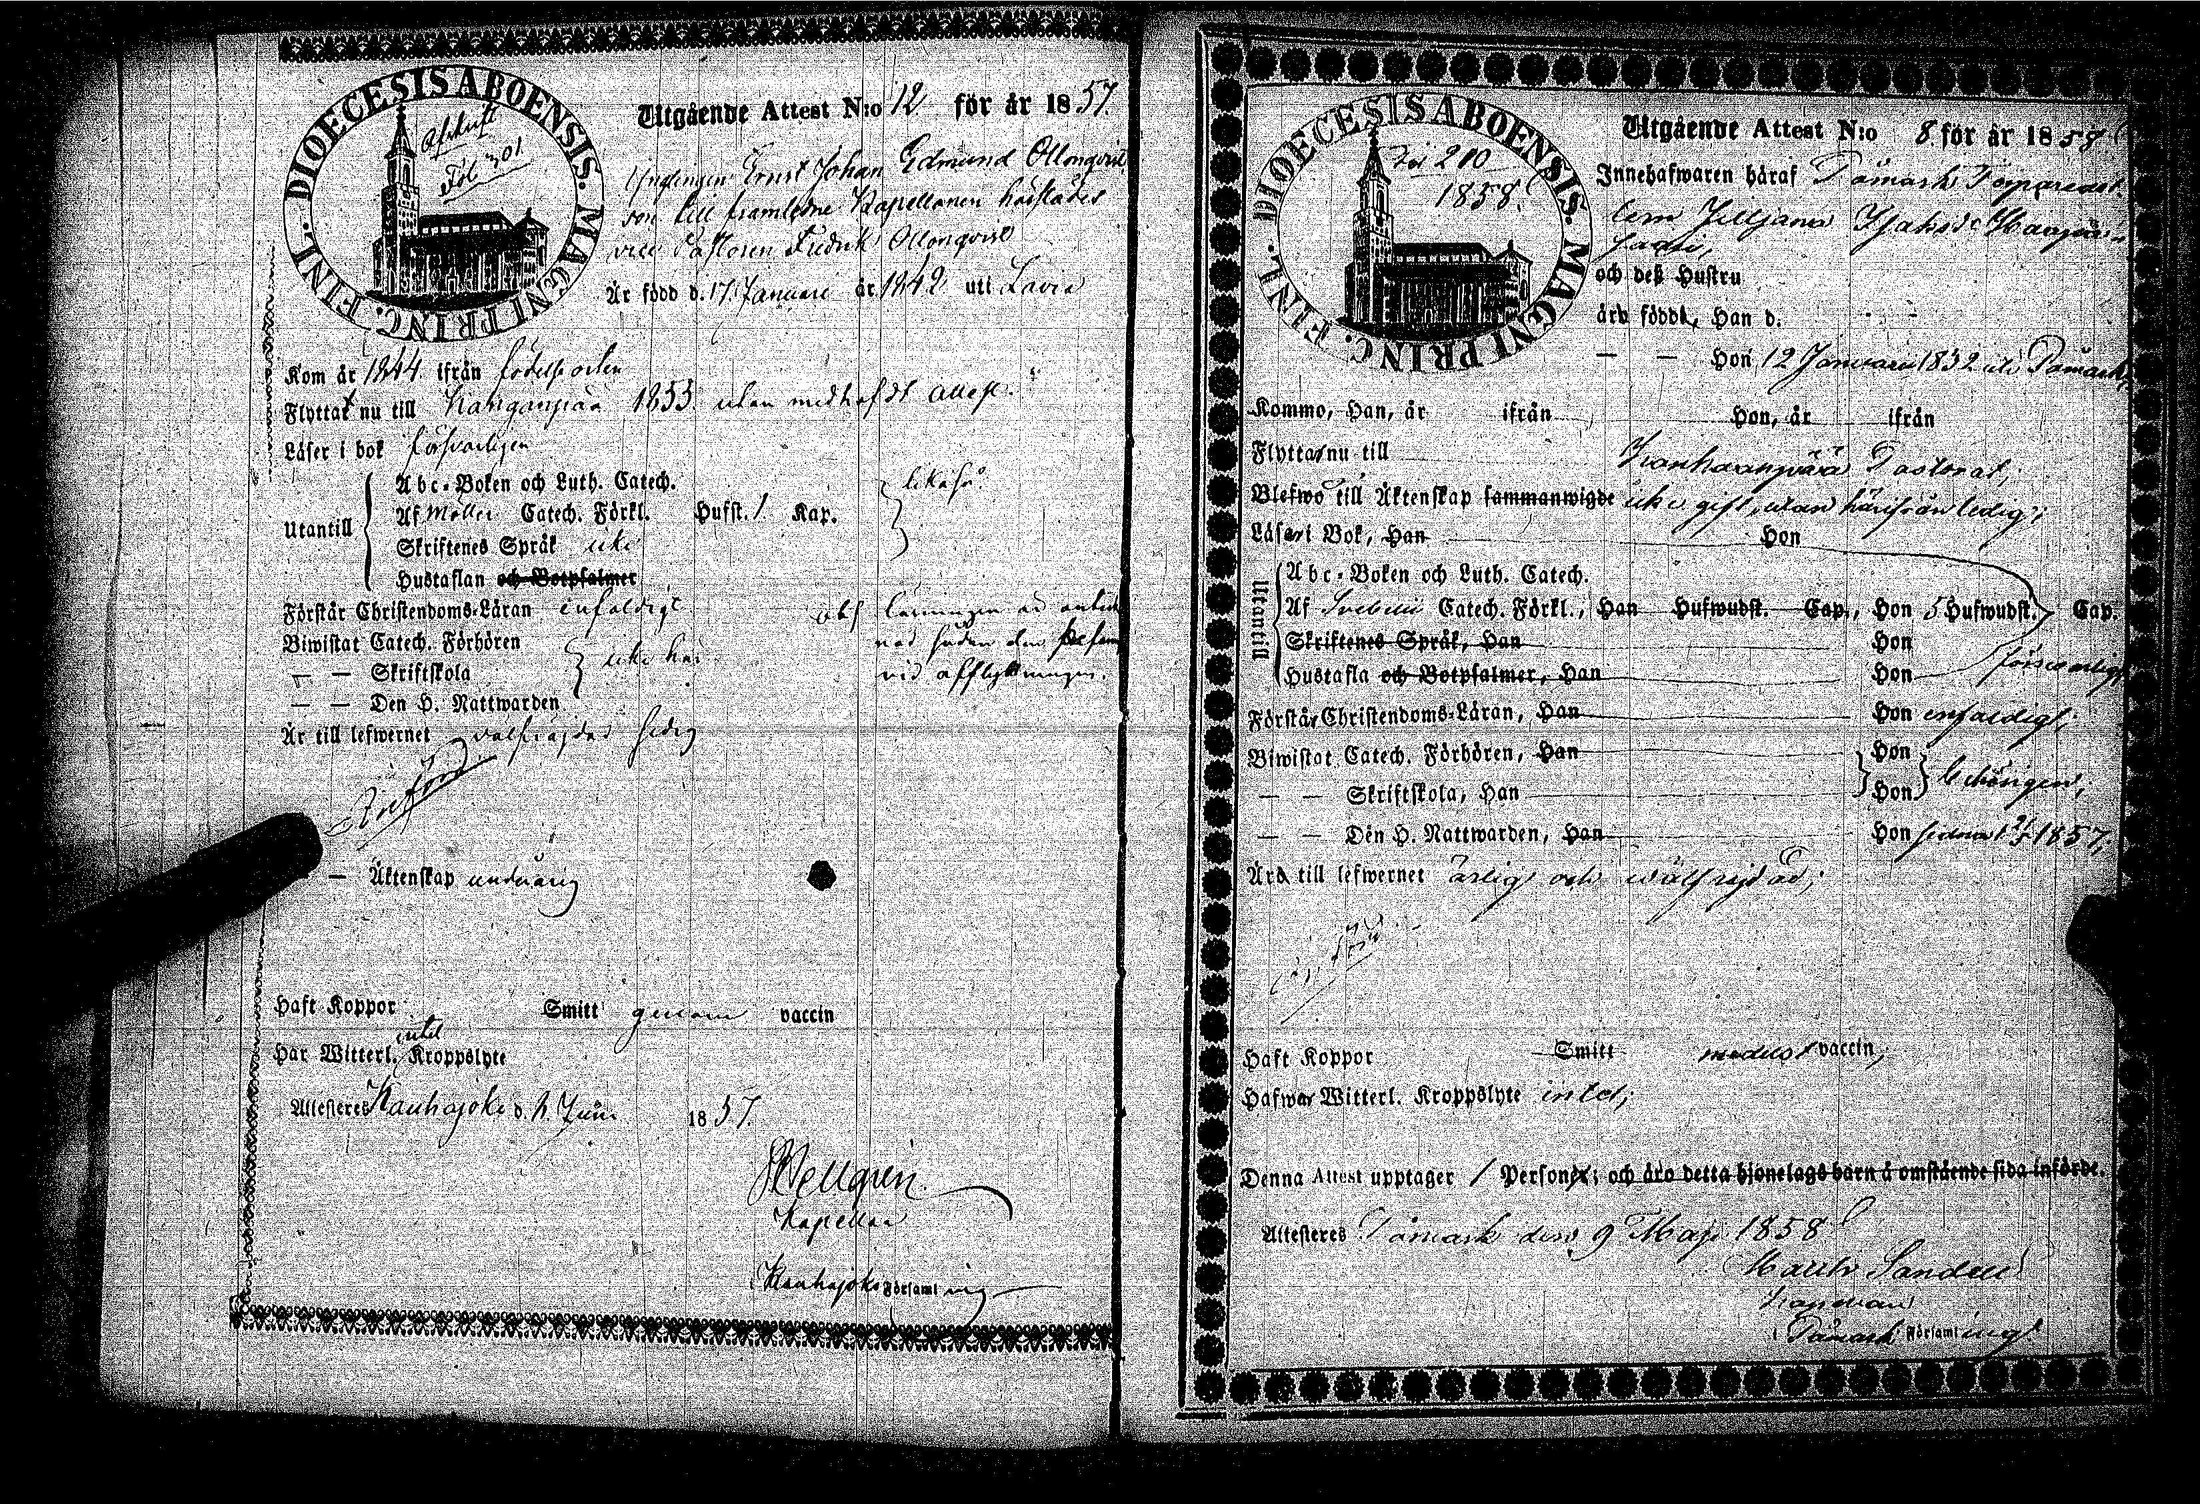 DIOECESIS ABOENSIS. MAGNI PRINC. FINL.
Afskrift
Fol 301
Utgående Attest N:o 12 för år 1857.
Ynglingen Ernst Johan Edmund Ollonqvist
son till framledne Kapellanen härstädes
vice Pastoren Fredrik Ollonqvist
Är född d. 17 Januari år 1842 uti Lavia
Kom år 1844 ifrån födelseorten
Flyttat nu till Kankaanpää 1853 utan medhafdt attest.
Läser i bok försvarligen
Utantill
Abc-Boken och Luth. Catech. likaså
Af Möller Catech. Förkl. Hufst. 1 Kap.
Skriftenes Språk icke
Hustaflan och Botpsalmer
Förstår Christendoms-Läran enfaldigt
Biwistat Catech. Förhören
— — Skriftskola icke har
— — Den H. Nattwarden
obs läsningen är antecknad sådan den befanns
vid afflyttningen.
Är till lefwernet välfrejdad ledig
— Äktenskap underårig
Haft Koppor Smitt genom vaccin
Har Witterl. intet Kroppslyte
Attesteres Kauhajoki d. 1 Juni 1857.
Wellgrén
Kapellan
i Kauhajoki Församling
DIOECESIS ABOENSIS. MAGNI PRINC. FINL.
Fol 210
1858.
Utgående Attest N:o 8 för år 1858
Innehafwaren häraf Påmark
och deß Hustru
äro födde, Han d.
— — Hon 12 Januari 1832 uti Påmark
Kommo, Han, år ifrån Hon, år ifrån
Flytta nu till Kankaanpää Pastorat;
Blefwo till Äktenskap sammanwigde icke gift, utan härifrån ledig;
Läser i Bok, Han Hon
Utantill
Abc-Boken och Luth. Catech.
Af Svebelii Catech. Förkl., Han Hufwudst. Cap., Hon 5 Hufwudst. Cap.
Skriftenes Språk, Han Hon
Hustafla och Botpsalmer, Han Hon försvarligt
Förstår Christendoms-Läran, Han Hon enfaldigt;
Biwistat Catech. Förhören, Han Hon
— — Skriftskola, Han Hon behörigen;
— — Den H. Nattwarden, Han Hon 1857;
Är till lefwernet ärlig och wälfrejdad;
Haft Koppor Smitt medelst vaccin;
Hafwa Witterl. Kroppslyte intet;
Denna Attest upptager 1 Person; och äro detta hjonelags barn å omstående sida införde.
Attesteres Påmark den 9 Maji 1858
Kapellan
i Påmark Församling